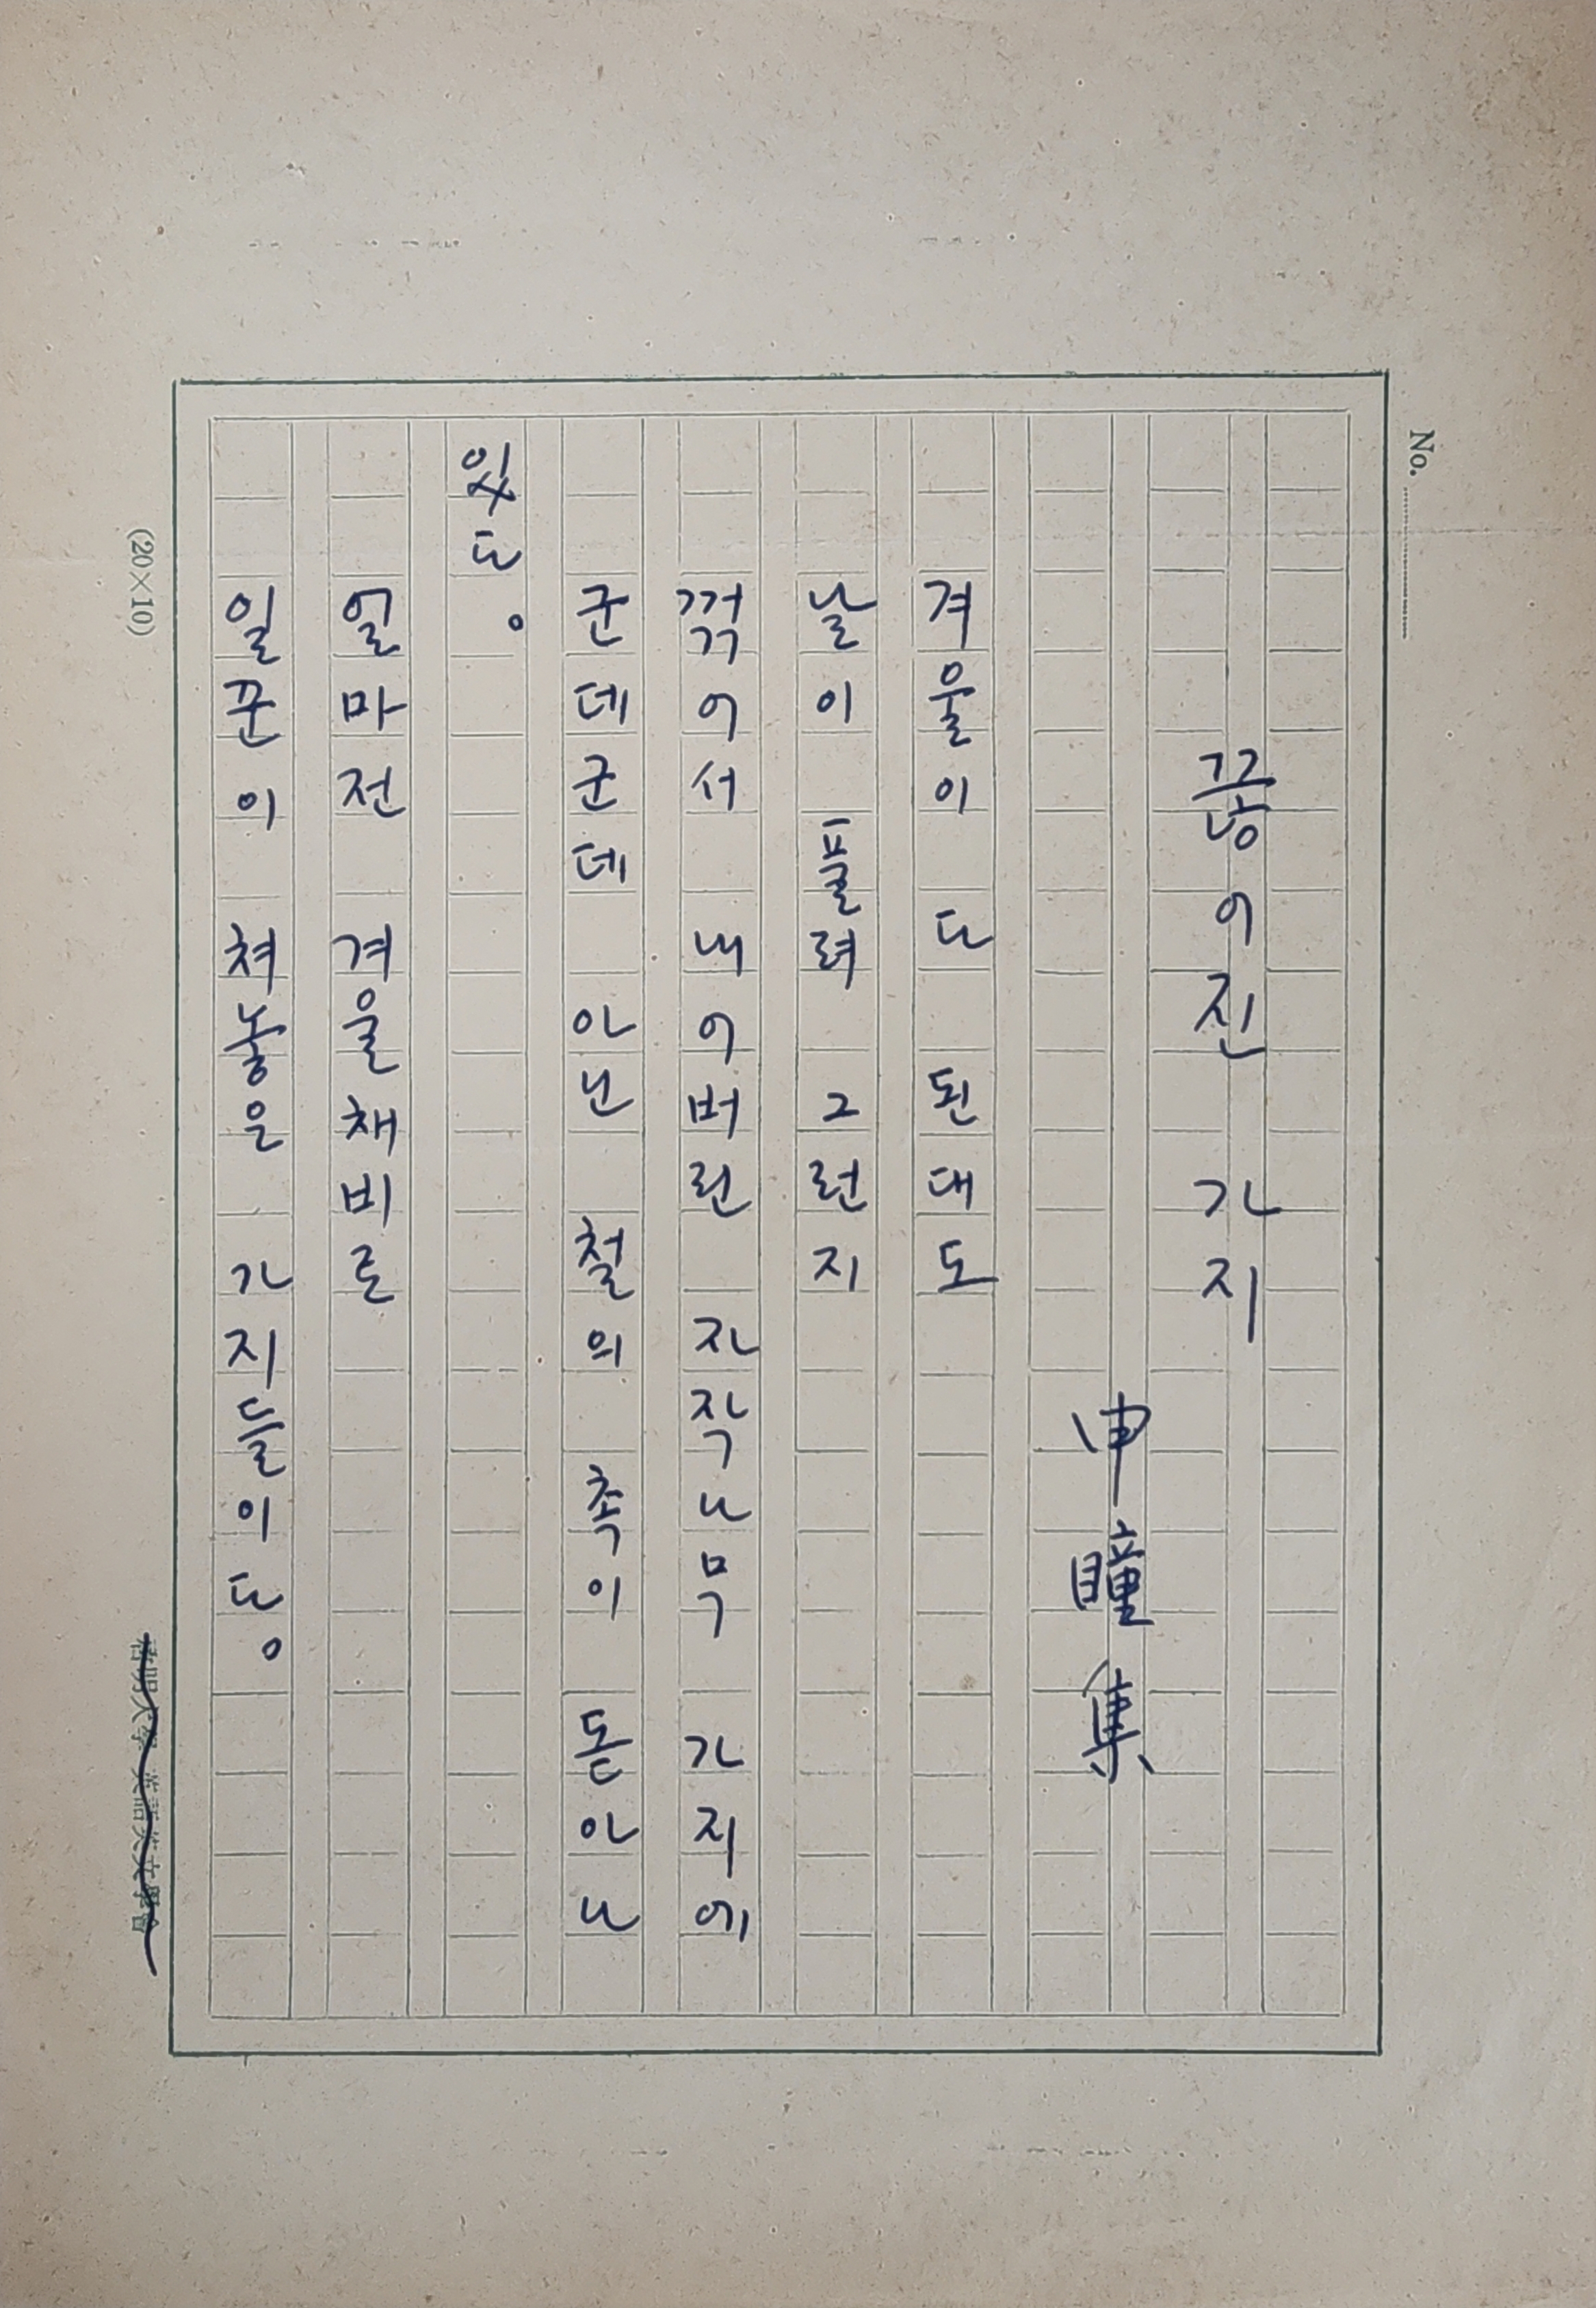 No.
끊어진 가지
申瞳集
겨울이 다 된대도
날이 풀려 그런지
꺾어서 내어버린 자작나무 가지에
군데군데 아닌 철의 촉이 돋아나
있다.
얼마전 겨울채비로
일꾼이 쳐놓은 가지들이다.
(20×10)
啓明大學 英語英文學會